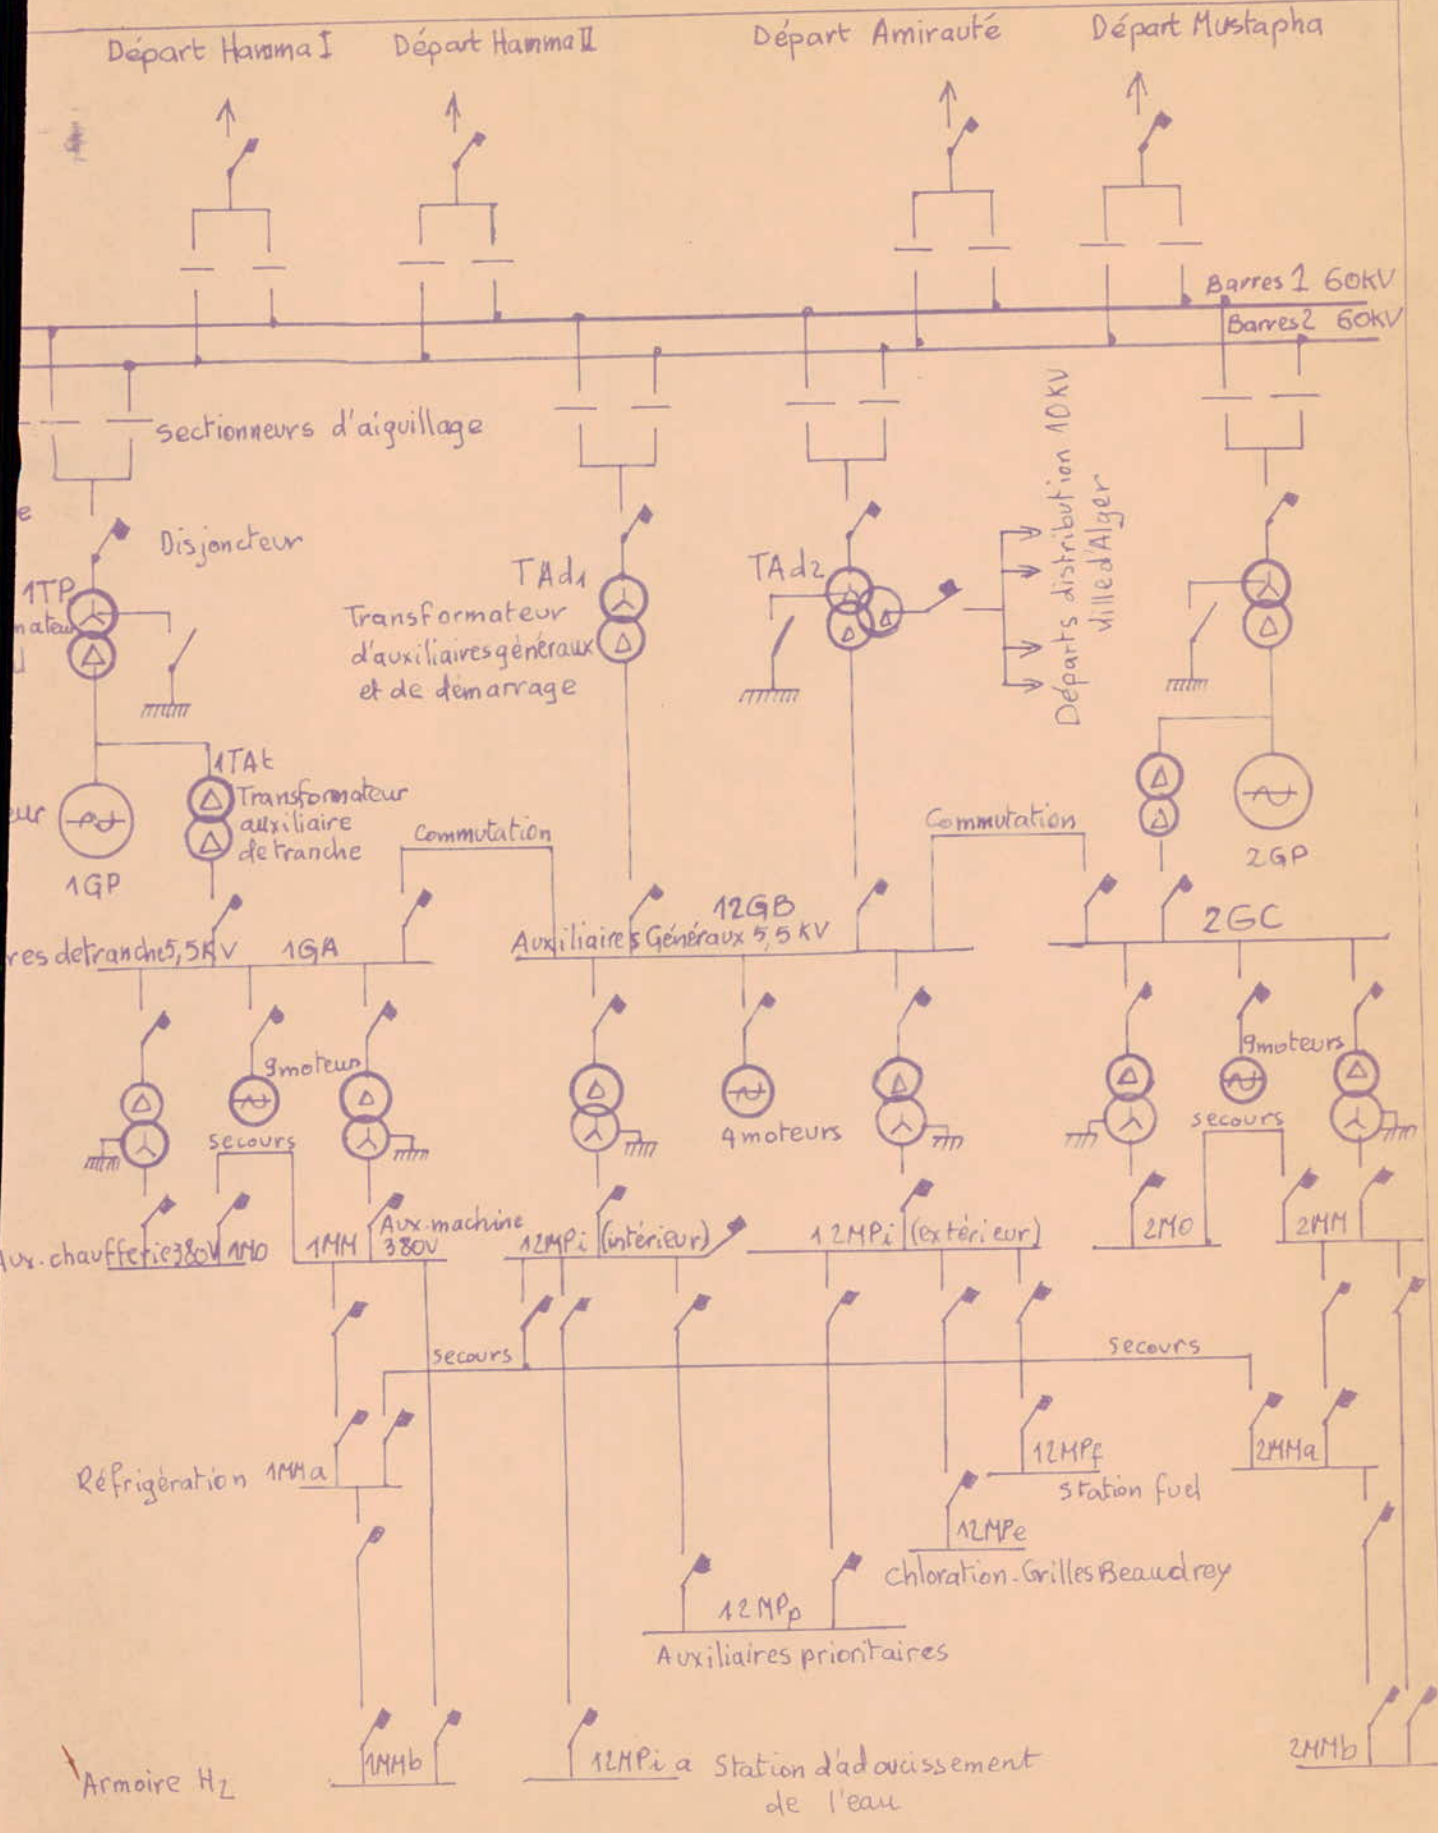 Départ Hamma I
Départ Hamma II
Départ Amirauté
Départ Mustapha
Barres 1 60KV
Barres 2 60KV
sectionneurs d'aiguillage
Disjoncteur
1TP
TAd1
Transformateur
d'auxiliaires généraux
et de démarrage
TAd2
Départs distribution 10KV
ville d'Alger
1TAt
Transformateur
auxiliaire
de tranche
1GP
2GP
Commutation
Commutation
12GB
Auxiliaires Généraux 5,5 KV
2GC
de tranche 5,5KV
1GA
9 moteurs
4 moteurs
9 moteurs
secours
secours
Aux. chaufferie 380V 1MO
1MM
Aux. machine
380V
12MPi (intérieur)
12MPi (extérieur)
2MO
2MM
secours
secours
Réfrigération 1MMa
12MPf
Station fuel
2MMa
12MPe
Chloration - Grilles Beaudrey
12MPp
Auxiliaires prioritaires
Armoire H2
1MMb
12MPi a Station d'adoucissement
de l'eau
2MMb